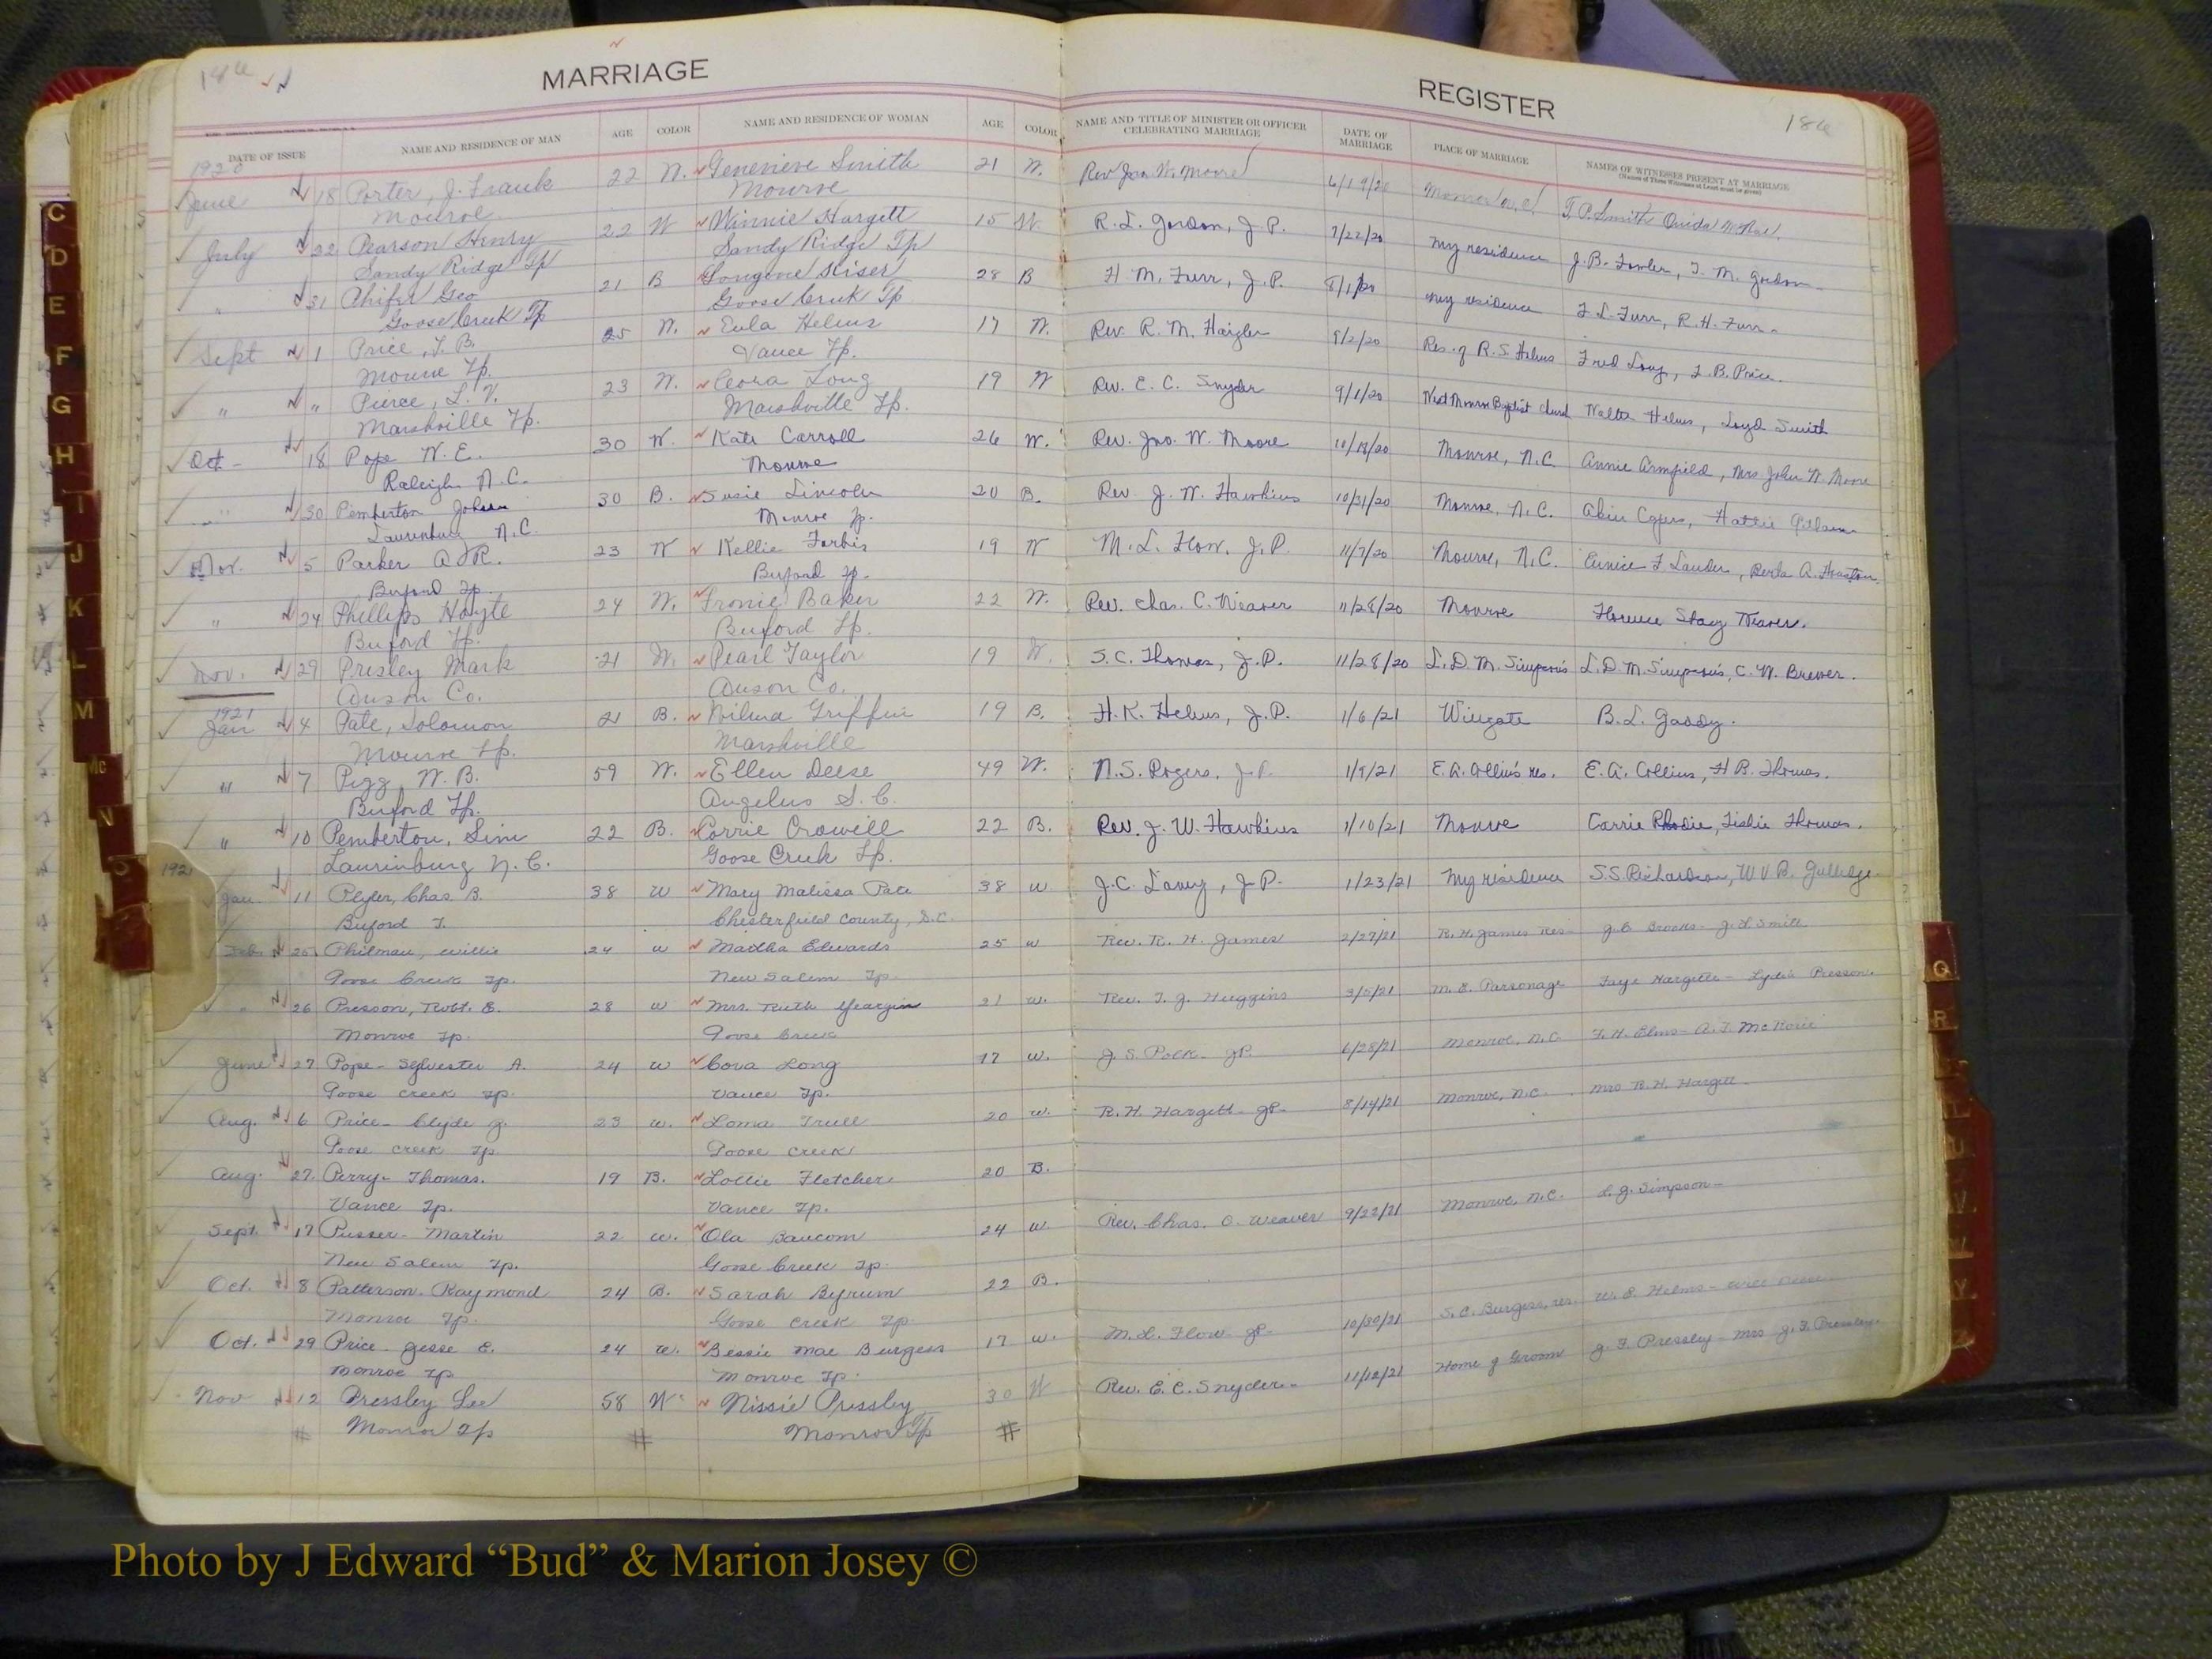 186
MARRIAGE
REGISTER
186
DATE OF ISSUE NAME AND RESIDENCE OF MAN AGE COLOR NAME AND RESIDENCE OF WOMAN AGE COLOR NAME AND TITLE OF MINISTER OR OFFICER CELEBRATING MARRIAGE DATE OF MARRIAGE PLACE OF MARRIAGE NAMES OF WITNESSES PRESENT AT MARRIAGE
(Names of Three Witnesses at Least must be given)
1920
June 18 Porter, J. Frank 22 W. Genevieve Smith 21 W. Rev Jno W. Moore 6/19/20 Monroe N.C. T.P. Smith
Monroe Monroe
July 22 Pearson Henry 22 W Winnie Hargett 15 W. R. L. Gordon, J. P. 7/22/20 my residence J. B. Fowler, T. M. Gordon
Sandy Ridge Tp Sandy Ridge Tp
" 31 Geo 21 B Kiser 28 B H. M. Furr, J. P. 8/1/20 my residence J. L. Furr, R. H. Furr
Goose Creek Tp Goose Creek Tp
Sept 1 Price, J. B. 25 W. Eula Helms 17 W. Rev. R. M. Haigler 9/2/20 Res. of R. S. Helms Fred Long, J. B. Price
Monroe Tp. Vance Tp.
" " Pierce, L. V. 23 W. Leora Long 19 W Rev. E. C. Snyder 9/1/20 West Monroe Baptist church Walter Helms, Loyd Smith
Marshville Tp. Marshville Tp.
Oct 18 Pope W. E. 30 W. Kate Carroll 26 W. Rev. Jno. W. Moore 10/18/20 Monroe, N.C. Annie Armfield, Mrs John W. Moore
Raleigh N.C. Monroe
" 30 Pemberton 30 B. Susie Lincoln 20 B. Rev. J. W. Hawkins 10/31/20 Monroe, N.C. Hattie
Laurinburg N.C. Monroe Tp.
Nov. 5 Parker A R. 23 W Kellie Forbis 19 W M. L. Flow, J.P. 11/7/20 Monroe, N.C. Eunice F. Lauder, Berta A. Houston
Buford Tp. Buford Tp.
" 24 Phillips Hoyte 24 W. Fronie Baker 22 W. Rev. Chas. C. Weaver 11/28/20 Monroe Florence Stacy Weaver.
Buford Tp. Buford Tp.
Nov. 29 Presley Mark 21 W. Pearl Taylor 19 W. S. C. Thomas, J. P. 11/28/20 L. D. M. Simpson's L. D. M. Simpson's, C. W. Brewer.
Anson Co. Anson Co.
1921
Jan 4 Pate, Solomon 21 B. Wilma Griffin 19 B. H. K. Helms, J.P. 1/6/21 Wingate B. L. Gaddy.
Monroe Tp. Marshville
" 7 Pigg W. B. 59 W. Ellen Deese 49 W. N. S. Rogers, J.P. 1/9/21 E. A. Collins res. E. A. Collins, H B. Thomas.
Buford Tp. Angelus S. C.
" 10 Pemberton, Sim 22 B. Corrie Crowell 22 B. Rev. J. W. Hawkins 1/10/21 Monroe Carrie Rhodie, Leslie Thomas.
Laurinburg N. C. Goose Creek Tp.
192
Jan. 11 Plyler, Chas B. 38 w Mary Malissa Pace 38 w J. C. Laney, J-P. 1/23/21 My residence S. S. Richardson, W V B. Gulledge
Buford T. Chesterfield County, S.C.
Feb 25 Philmon, Willie 24 w Martha Edwards 25 w Rev. R. H. James 2/27/21 R. H. James Res J. E. Brooks - J. L Smith
Goose Creek Tp. New Salem Tp.
" 26 Presson, Robt. E. 28 w Mrs. Ruth Yeargin 21 w. Rev. T. J. Huggins 3/5/21 M. E. Parsonage Faye Hargette - Lydia Presson.
Monroe Tp. Goose Creek
June 27 Pope - Sylvester A. 24 w Cora Long 17 w. J. S. Polk - JP. 6/28/21 Monroe, N.C. F. H. Elms - A. T. McRorie
Goose Creek Tp. Vance Tp.
Aug. 6 Price - Clyde J. 23 w. Loma Trull 20 w. R. H. Hargett - JP 8/14/21 Monroe, N.C. Mrs R. H. Hargett
Goose Creek Tp. Goose Creek
Aug. 27 Perry - Thomas. 19 B. Lottie Fletcher 20 B.
Vance Tp. Vance Tp.
Sept. 17 Pusser - Martin 22 w. Ola Baucom 24 w Rev. Chas. C. Weaver 9/22/21 Monroe, N.C. L. J. Simpson
New Salem Tp. Goose Creek Tp.
Oct. 8 Patterson - Raymond 24 B. Sarah Byrum 22 B.
Monroe Tp. Goose Creek Tp.
Oct. 29 Price - Jesse E. 24 w. Bessie Mae Burgess 17 w. M. L. Flow JP 10/30/21 S. C. Burgess, res. W. E. Helms -
Monroe Tp Monroe Tp.
Nov 12 Pressley Lee 58 W Missie Pressley 30 W Rev. E. C. Snyder 11/12/21 Home of Groom J. F. Pressley - Mrs J. F. Pressley
# Monroe Tp # Monroe Tp #
C
D
E
F
G
H
I
J
K
L
M
Mc
N
O
Q
R
Photo by J Edward “Bud” & Marion Josey ©